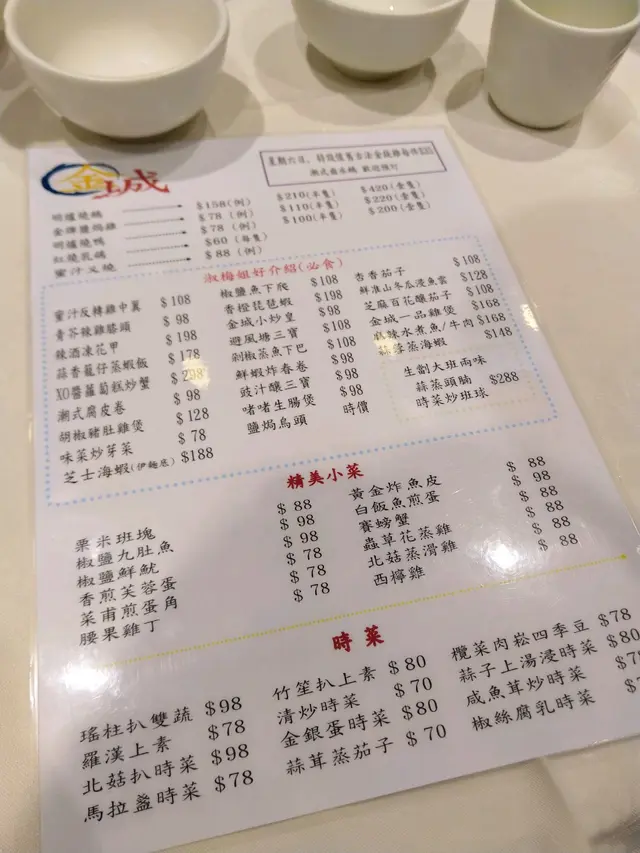 金城
星期六日，特設懷舊古法金錢雞每件$35
潮式滷水鵝 歡迎預訂
明爐燒鵝 $158(例) $210(半隻) $420(全隻)
金牌鹽焗雞 $78(例) $110(半隻) $220(全隻)
明爐燒鴨 $78(例) $100(半隻) $200(全隻)
紅燒乳鴿 $60(每隻)
蜜汁叉燒 $88(例)
淑梅姐好介紹(必食)
蜜汁反轉雞中翼 $108
青芥辣雞膝頭 $98
辣酒凍花甲 $198
蒜香籠仔蒸蝦飯 $178
XO醬蘿蔔糕炒蟹 $298
潮式腐皮卷 $98
胡椒豬肚雞煲 $128
味菜炒芽菜 $78
芝士海蝦(伊麵底) $188
椒鹽魚下爬 $108
香橙琵琶蝦 $198
金城小炒皇 $108
避風塘三寶 $108
剁椒蒸魚下巴 $108
鮮蝦炸春卷 $98
豉汁釀三寶 $98
啫啫生腸煲 $98
鹽焗烏頭 時價
杏香茄子 $108
鮮淮山冬瓜浸魚雲 $128
芝麻百花釀茄子 $108
金城一品雞煲 $168
麻辣水煮魚/牛肉 $168
蒜蓉蒸海蝦 $148
生劏大班兩味
蒜蒸頭腩
時菜炒班球 $288
精美小菜
粟米班塊 $88
椒鹽九肚魚 $98
椒鹽鮮魷 $98
香煎芙蓉蛋 $78
菜甫煎蛋角 $78
腰果雞丁 $78
黃金炸魚皮 $88
白飯魚煎蛋 $98
賽螃蟹 $88
蟲草花蒸雞 $88
北菇蒸滑雞 $88
西檸雞 $88
時菜
瑤柱扒雙蔬 $98
羅漢上素 $78
北菇扒時菜 $98
馬拉盞時菜 $78
竹笙扒上素 $80
清炒時菜 $70
金銀蛋時菜 $80
蒜茸蒸茄子 $70
欖菜肉崧四季豆 $78
蒜子上湯浸時菜 $80
咸魚茸炒時菜
椒絲腐乳時菜